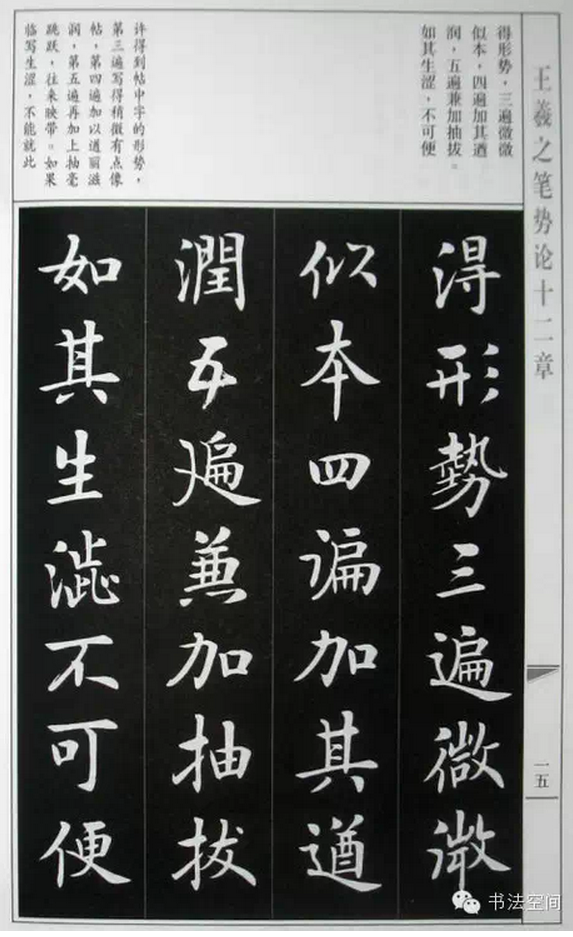 王羲之笔势论十二章
一五
得形势，三遍微微
似本，四遍加其遒
润，五遍兼加抽拔。
如其生涩，不可便
许得到帖中字的形势，
第三遍写得稍微有点像
帖，第四遍加以遒丽滋
润，第五遍再加上抽毫
跳跃，往来映带。如果
临写生涩，不能就此
得形勢三遍微微
似本四遍加其遒
潤五遍兼加抽拔
如其生澁不可便
书法空间